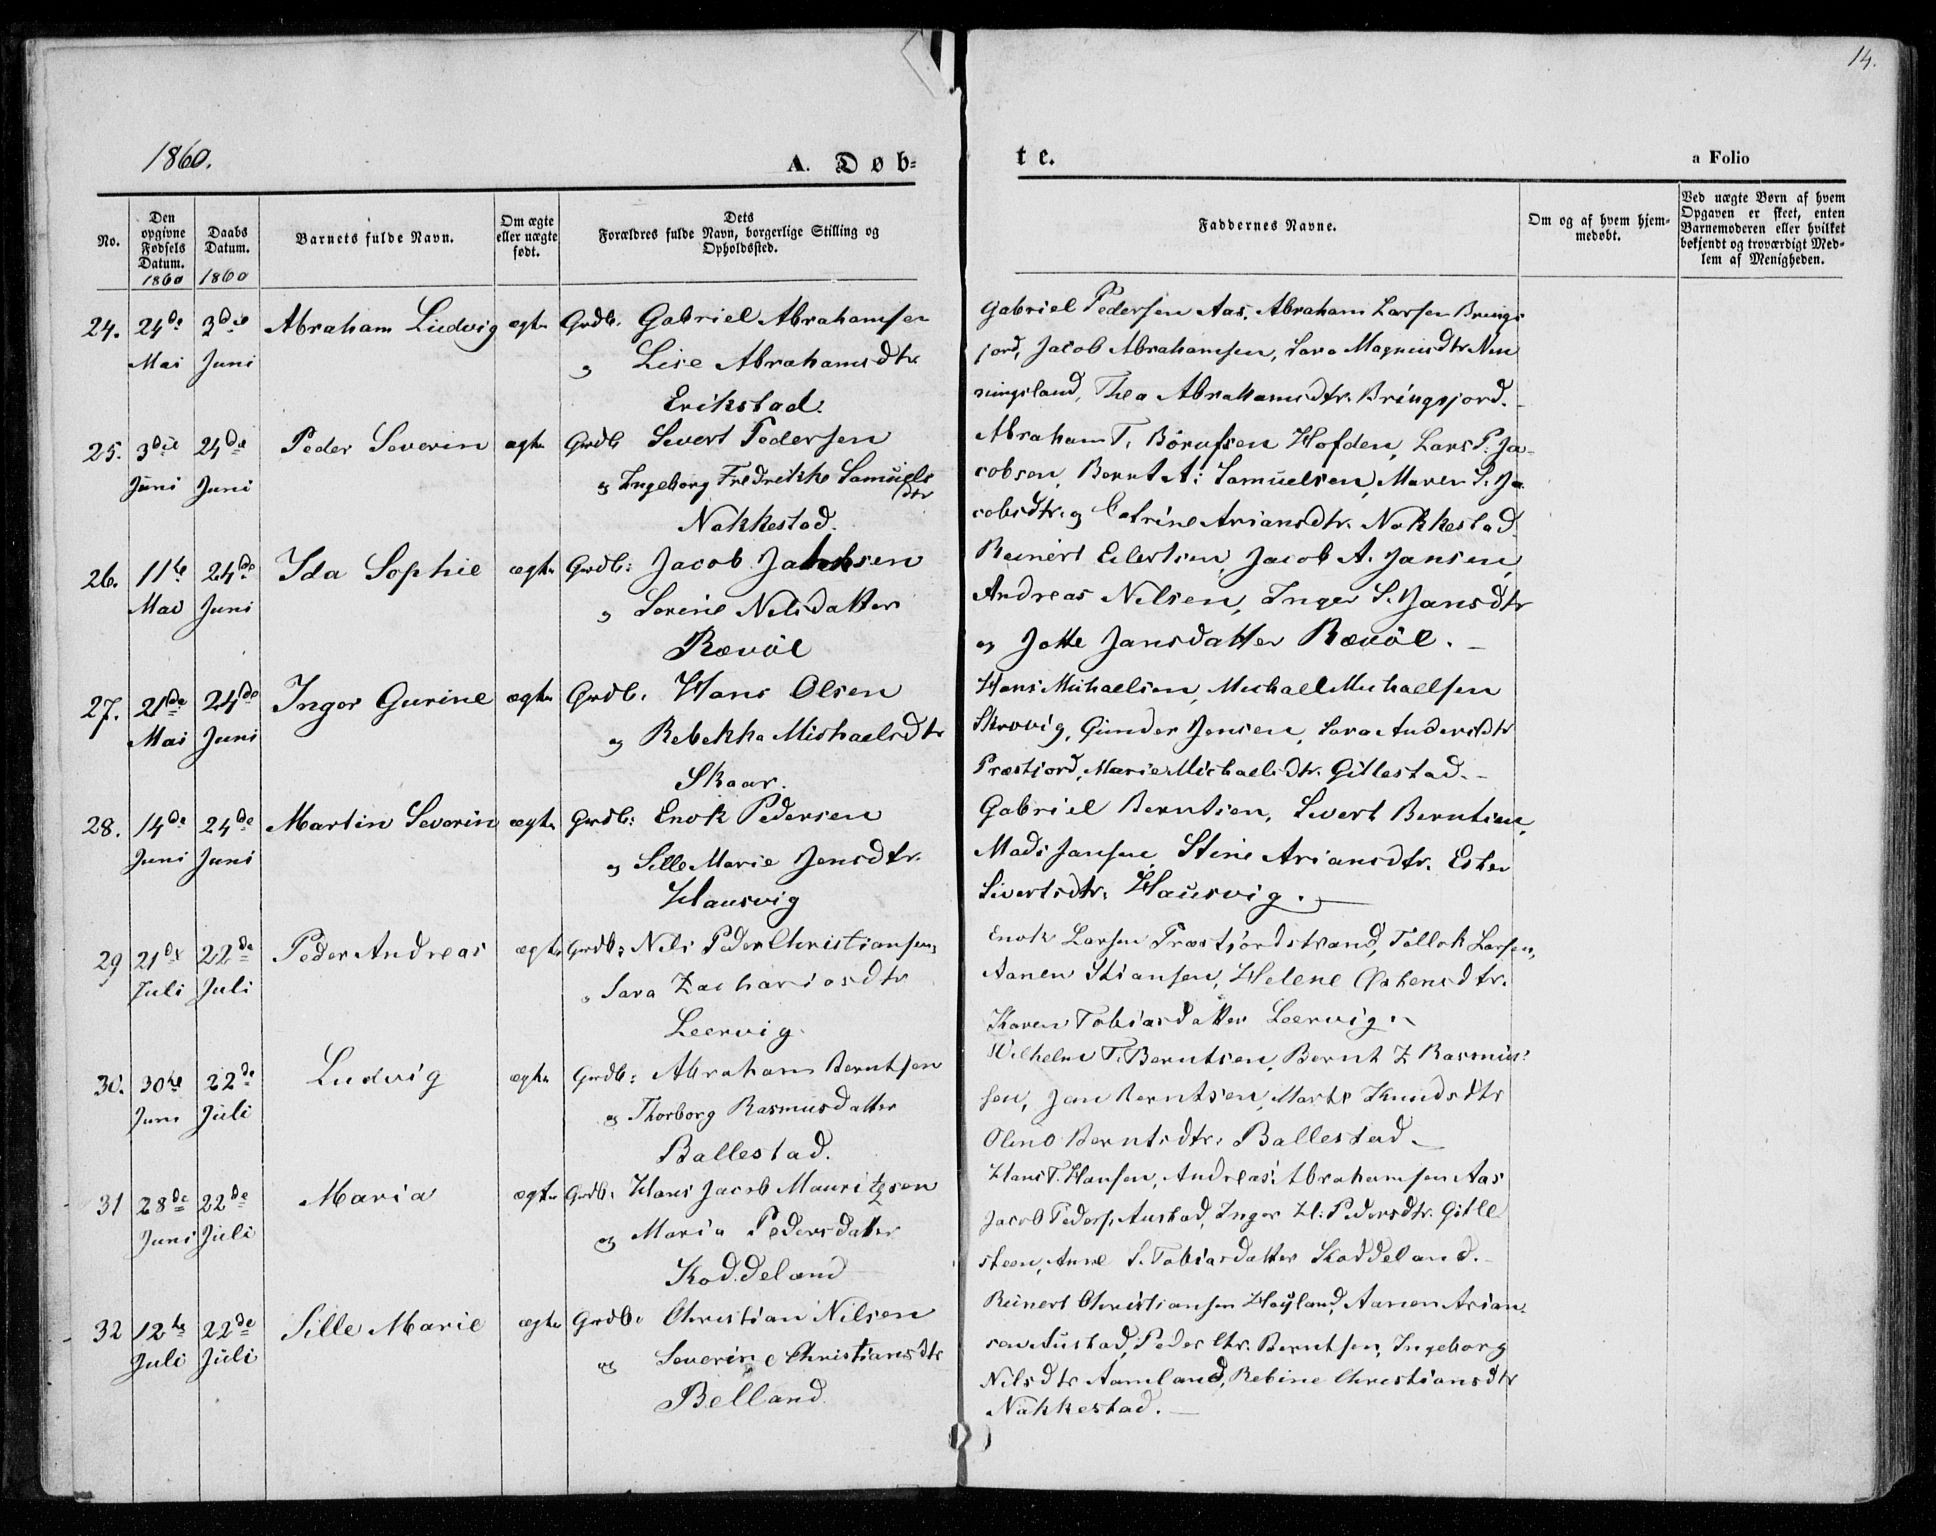 14.
1860.
A. Døb-
te.
a Folio
No.
Den
opgivne
Fødsels
Datum.
1860
Daabs
Datum.
1860
Barnets fulde Navn.
Om ægte
eller uægte
født.
Dets
Forældres fulde Navn, borgerlige Stilling og
Opholdssted.
Faddernes Navne.
Om og af hvem hjem-
medøbt.
Ved uægte Børn af hvem
Opgaven er skeet, enten
Barnemoderen eller hvilket
bekjendt og troværdigt Med-
lem af Menigheden.
24. 24de 3die Abraham Ludvig ægte Grdb. Gabriel Abrahamsen
Mai Juni og Lise Abrahamsdtr
Erikstad.
Gabriel Pedersen Aas, Abraham Larsen Brings
jord, Jacob Abrahamsen, Sara Magnusdtr Nen
ningsland, Thea Abrahamsdtr. Bringsjord.
25. 3die 24de Peder Severin ægte Grdb Sivert Pedersen
Juni Juni og Ingeborg Fredrikke Samuels
dtr
Nakkestad.
Abraham T. Børufsen Hofden, Lars P. Ja-
cobsen, Bernt A. Samuelsen, Maren S. Ja
cobsdtr. og Catrine Ariansdtr. Nakkestad
26. 11te 24de Ida Sophie ægte Grdb: Jacob Jacobsen
Mai Juni og Sorine Nilsdatter
Rævøl
Reinert Eilertsen, Jacob A. Jansen,
Andreas Nilsen, Inger S. Jansdtr
og Jotte Jansdatter Rævøl. –
27. 21de 24de Inger Gurine ægte Grdb. Hans Olsen
Mai Juni og Rebekka Michaelsdtr
Skaar.
Hans Michaelsen, Michael Michaelsen
Skrovig, Gunder Jensen, Sara Andersdtr
Præstjord, Marie Michaelsdtr. Gitlestad. –
28. 14de 24de Martin Severin ægte Grdb: Enok Pedersen
Juni Juni og Sille Marie Jensdtr.
Hausvig
Gabriel Berntsen, Sivert Berntsen,
Mads Jansen, Stine Ariansdtr. Ester
Sivertsdtr. Hausvig. –
29 21de 22de Peder Andreas ægte Grdb: Nils Peder Christiansen,
Juli Juli " Sara Zachariasdtr
Leervig.
Enok Larsen Præstjordstrand, Tollok Larsen,
Aanen Stiansen, Helene Østensdtr.
Karen Tobiasdatter Leervig.
30. 30te 22de Ludvig ægte Grdb: Abraham Berntsen
Juni Juli og Thorborg Rasmusdatter
Ballestad.
Wilhelm T. Berntsen, Bernt Z Rasmus-
sen, Jan Berntsen, Marte Knudsdtr
Oline Berntsdtr. Ballestad –
31 28de 22de Maria ægte Grdb: Hans Jacob Mauritzsen
Juni Juli og Maria Pedersdatter
Koddeland
Hans T. Hansen, Andreas Abrahamsen Aas
Jacob Peders. Austad, Inger H. Pedersdtr. Gitle
steen, Anne S. Tobiasdatter Koddeland. –
32 12te 22de Sille Marie ægte Grdb. Christian Nilsen
Juli Juli og Severine Christiansdtr
Belland
Reinert Christiansen Høyland, Aanen Arian
sen Austad, Peder Chr. Berntsen, Ingeborg
Nilsdtr Aamland, Rebine Christiansdtr
Nakkestad. –